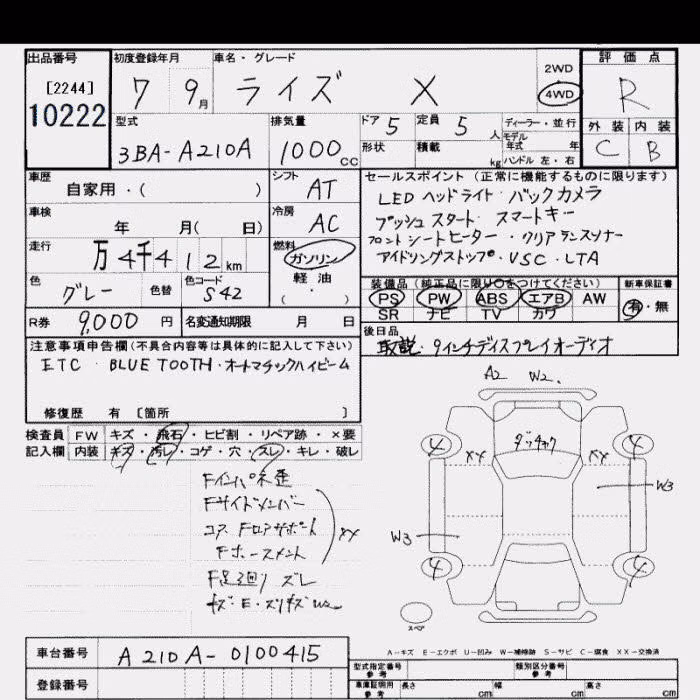 出品番号 初度登録年月 車名・グレード 評価点
[2244] 7 9月 ライズ X 2WD 4WD R
10222
型式 排気量 ドア 5 定員 5人 ディーラー・並行 外装 内装
3BA-A210A 1000cc 形状 積載 kg モデル年式 年 ハンドル 左・右 C B
車歴 シフト セールスポイント(正常に機能するものに限ります)
自家用・( ) AT LEDヘッドライト・バックカメラ
車検 冷房 プッシュスタート・スマートキー
年 月( 日) AC フロントシートヒーター・クリアランスソナー
走行 燃料 アイドリングストップ・VSC・LTA
万4千412km ガソリン
色 色替 色コード 軽油 装備品(純正品に限り○をつけてください) 新車保証書
グレー S42 ・( ) PS PW ABS エアB AW 有・無
SR ナビ TV カワ
R券 9,000円 名変通知期限 月 日 後日品
取説・9インチディスプレイオーディオ
注意事項申告欄(不具合内容等は具体的に記入して下さい)
ETC・BLUETOOTH・オートマチックハイビーム
修復歴 有 [箇所 ]
A2 W2.
検査員 FW キズ・飛石・ヒビ割・リペア跡・×要
記入欄 内装 キズ・汚レ・コゲ・穴・スレ・キレ・破レ
4 ダッチャク 4
XX XX
Fインパネ歪
Fサイドメンバー
コアFロアサポート XX
Fホースメント
W3
W3
F足廻りズレ
キズ・E・スリキズW2
4 4
スペア
A-キズ E-エクボ U-凹み W-補修跡 S-サビ C-腐食 XX-交換済
車台番号 A210A-0100415
型式指定番号 参考 類別区分番号 参考
登録番号 車庫証明用 参考 長さ cm 幅 cm 高さ cm